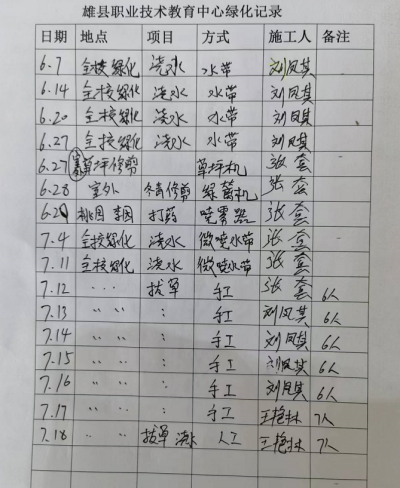 雄县职业技术教育中心绿化记录
日期 地点 项目 方式 施工人 备注
6.7 全校绿化 浇水 水带 刘凤其
6.14 全校绿化 浇水 水带 刘凤其
6.20 全校绿化 浇水 水带 刘凤其
6.27 全校绿化 浇水 水带 刘凤其
6.27 草坪修剪 草坪机 张套
6.28 室外 冬青修剪 绿篱机 张套
6.28 桃园 李园 打药 喷雾器 张套
7.4 全校绿化 浇水 微喷水带 张套
7.11 全校绿化 浇水 微喷水带 张套
7.12 拔草 手工 张套 6人
7.13 〃 〃 : 手工 刘凤其 6人
7.14 〃 〃 : 手工 刘凤其 6人
7.15 〃 〃 : 手工 刘凤其 6人
7.16 〃 〃 : 手工 刘凤其 6人
7.17 〃 〃 : 手工 王艳林 7人
7.18 〃 〃 拔草 浇水 人工 王艳林 7人